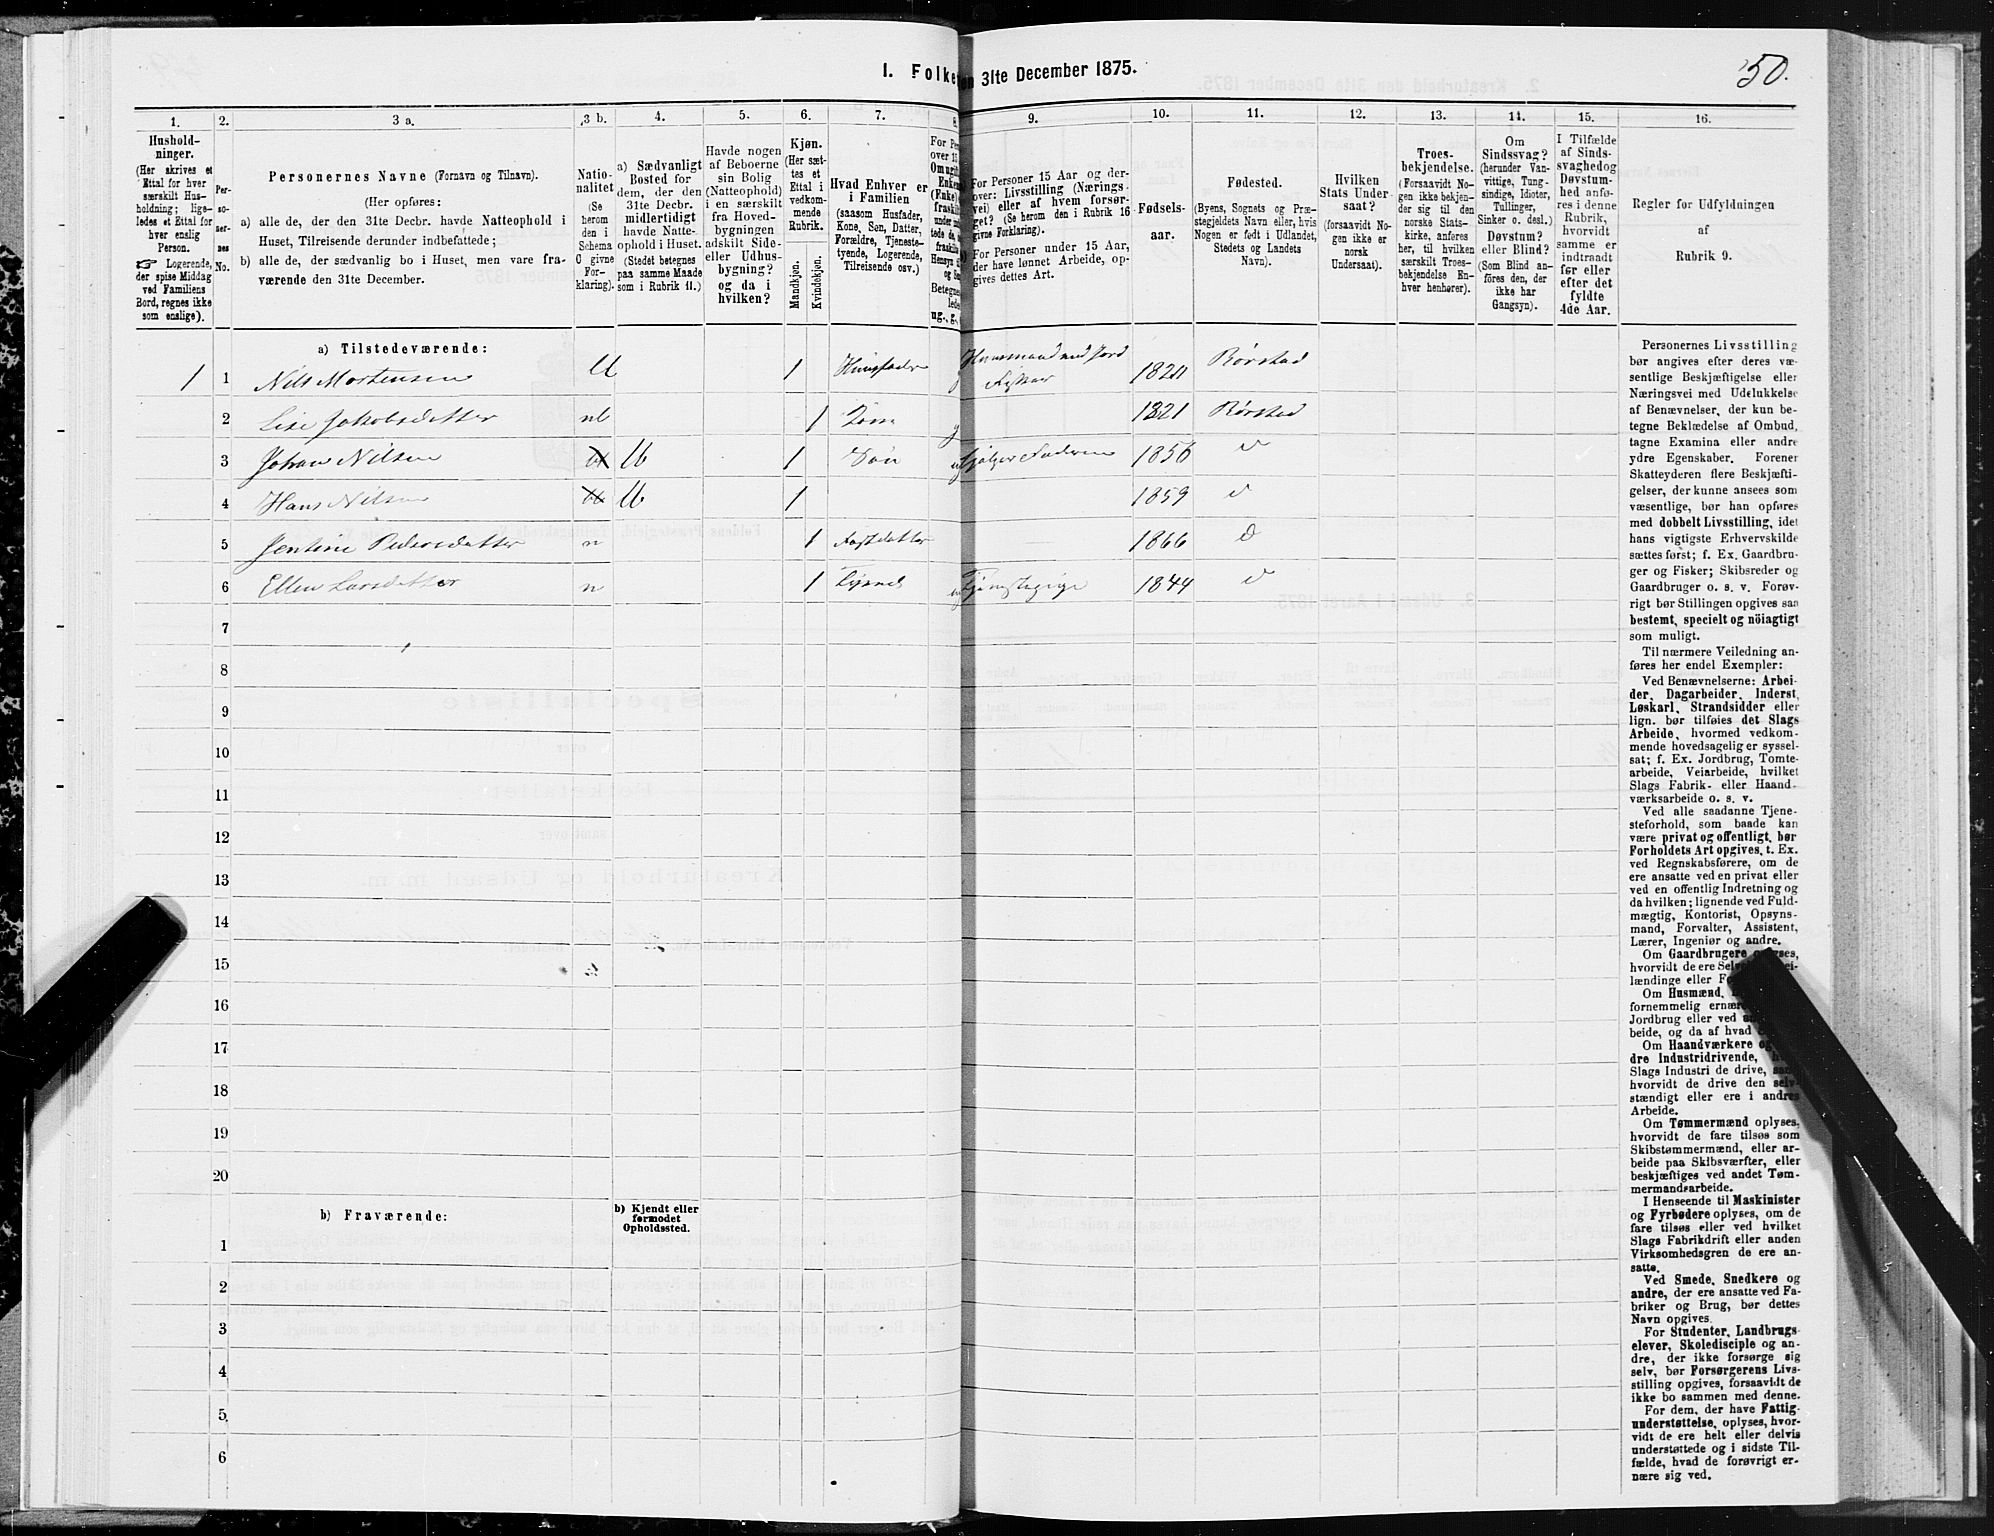 50.
1. Folke
en 31te December 1875.
1.
2.
3 a.
3 b.
4.
5.
6.
7.
8.
9.
10.
11.
12.
13.
14.
15.
16.
Hushold-
ninger.
(Her skrives et
Ettal for hver
særskilt Hus-
holdning; lige-
ledes et Ettal for
hver enslig
Person.
☞ Logerende,
der spise Middag
ved Familiens
Bord, regnes ikke
som enslige).
Per-
so-
ner-
nes
No.
Personernes Navne (Fornavn og Tilnavn).
(Her opføres:
a) alle de, der den 31te Decbr. havde Natteophold i
Huset, Tilreisende derunder indbefattede;
b) alle de, der sædvanlig bo i Huset, men vare fra-
værende den 31te December.
Natio-
nalitet
(Se
herom
den i
Schema
C givne
For-
klaring).
a) Sædvanligt
Bosted for
dem, der den
31te Decbr.
midlertidigt
havde Natte-
ophold i Huset.
(Stedet betegnes
paa samme Maade
som i Rubrik 11.)
Havde nogen
af Beboerne
sin Bolig
(Natteophold)
i en særskilt
fra Hoved-
bygningen
adskilt Side-
eller Udhus-
bygning?
og da i
hvilken?
Kjøn.
(Her sæt-
tes et
Ettal i
vedkom-
mende
Rubrik.
Mandkjøn.
Kvindekjøn.
Hvad Enhver er
i Familien
(saasom Husfader,
Kone, Søn, Datter,
Forældre, Tjeneste-
tyende, Logerende,
Tilreisende osv.)
For Pers
over 15
Om ugift
Enkem
(Enke)
fraskilt
under
tede de,
fraskilt
Hensyn
og Se
Betegne
lede
ug., g.,
For Personer 15 Aar og der-
over: Livsstilling (Nærings-
vei) eller af hvem forsør-
get? (Se herom den i Rubrik 16
givne Forklaring).
For Personer under 15 Aar,
der have lønnet Arbeide, op-
gives dettes Art.
Fødsels-
aar.
Fødested.
(Byens, Sognets og Præ-
stegjeldets Navn eller, hvis
Nogen er født i Udlandet,
Stedets og Landets
Navn).
Hvilken
Stats Under-
saat?
(forsaavidt No-
gen ikke er
norsk
Undersaat).
Troes-
bekjendelse.
(Forsaavidt No-
gen ikke bekjen-
der sig til den
norske Stats-
kirke, anføres
her, til hvilken
særskilt Troes-
bekjendelse En-
hver henhører).
Om
Sindssvag?
(herunder Van-
vittige, Tung-
sindige, Idioter,
Tullinger,
Sinker o. desl.)
Døvstum?
eller Blind?
(Som Blind an-
føres den, der
ikke har
Gangsyn).
I Tilfælde
af Sinds-
svaghed og
Døvstum-
hed anfø-
res i denne
Rubrik,
hvorvidt
samme er
indtraadt
før eller
efter det
fyldte
4de Aar.
Regler for Udfyldningen
af
Rubrik 9.
a) Tilstedeværende:
1 1 Nils Mortensen U 1 Huusfader Huusmand med Jord Fisker Rørstad
2 Lise Jakobsdatter 1 1821 Rørstad
3 Johan Nilsen 1 Søn hjælper Faderen 1856
4 Hans Nilsen 1 1859
5 Jentine Pedersdatter n 1 Fostdatter 1866
6 Ellen Larsdatter n 1 Tjenestepige 1844
7
8
9
10
11
12
13
14
15
16
17
18
19
20
b) Fraværende:
b) Kjendt eller
formodet
Opholdssted.
1
2
3
4
5
6
Personernes Livsstilling
bør angives efter deres væ-
sentlige Beskjæftigelse eller
Næringsvei med Udelukkelse
af Benævnelser, der kun be-
tegne Beklædelse af Ombud,
tagne Examina eller andre
ydre Egenskaber. Forener
Skatteyderen flere Beskjæfti-
gelser, der kunne ansees som
væsentlige, bør han opføres
med dobbelt Livsstilling, idet
hans vigtigste Erhvervskilde
sættes først; f. Ex. Gaardbru-
ger og Fisker; Skibsreder og
Gaardbruger o. s. v. Forøv-
rigt bør Stillingen opgives saa
bestemt, specielt og nöiagtigt
som muligt.
Til nærmere Veiledning an-
føres her endel Exempler:
Ved Benævnelserne: Arbei-
der, Dagarbeider, Inderst,
Løskarl, Strandsidder eller
lign. bør tilføies det Slags
Arbeide, hvormed vedkom-
mende hovedsagelig er syssel-
sat; f. Ex. Jordbrug, Tomte-
arbeide, Veiarbeide, hvilket
Slags Fabrik- eller Haand-
værksarbeide o. s. v.
Ved alle saadanne Tjene-
steforhold, som baade kan
være privat og offentligt, bør
Forholdets Art opgives, t. Ex.
ved Regnskabsførere, om de
ere ansatte ved en privat eller
ved en offentlig Indretning og
da hvilken; lignende ved Fuld-
mægtig, Kontorist, Opsyns-
mand, Forvalter, Assistent,
Lærer, Ingeniør og andre.
Om Gaardbrugere oplyses,
hvorvidt de ere Selv
lændinge eller
Om Husmænd,
fornemmelig ernær
Jordbrug eller ved
beide, og da af hvad
Om Haandværkere og
dre Industridrivende,
Slags Industri de drive, samt
hvorvidt de drive den selv-
stændigt eller ere i andres
Arbeide.
Om Tømmermænd oplyses,
hvorvidt de fare tilsøs som
Skibstømmermænd, eller ar-
beide paa Skibsværfter, eller
beskjæftiges ved andet Tøm-
mermandsarbeide.
I Henseende til Maskinister
og Fyrbødere oplyses, om de
fare tilsøs eller ved hvilket
Slags Fabrikdrift eller anden
Virksomhedsgren de ere an-
satte.
Ved Smede, Snedkere og
andre, der ere ansatte ved Fa-
briker og Brug, bør dettes
Navn opgives.
For Studenter, Landbrugs-
elever, Skoledisciple og an-
dre, der ikke forsørge sig
selv, bør Forsørgerens Livs-
stilling opgives, forsaavidt de
ikke bo sammen med denne.
For dem, der have Fattig-
understøttelse, oplyses, hvor-
vidt de ere helt eller delvis
understøttede og i sidste Til-
fælde, hvad de forøvrigt er-
nære sig ved.